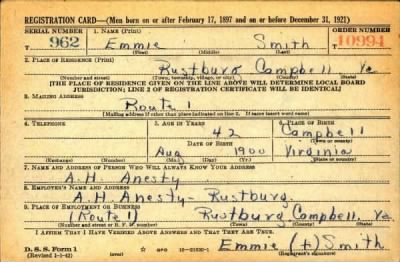 REGISTRATION CARD—(Men born on or after February 17, 1897 and on or before December 31, 1921)
SERIAL NUMBER 1. NAME (Print) ORDER NUMBER
962 Emmie Smith 10994
(First) (Middle) (Last)
2. PLACE OF RESIDENCE (Print)
Rustburg Campbell Va
(Number and street) (Town, township, village, or city) (County) (State)
[THE PLACE OF RESIDENCE GIVEN ON THE LINE ABOVE WILL DETERMINE LOCAL BOARD
JURISDICTION; LINE 2 OF REGISTRATION CERTIFICATE WILL BE IDENTICAL]
3. MAILING ADDRESS
Route 1
[Mailing address if other than place indicated on line 2. If same insert word same]
4. TELEPHONE 5. AGE IN YEARS 6. PLACE OF BIRTH
42 Campbell
DATE OF BIRTH (Town or county)
Aug 1900 Virginia
(Exchange) (Number) (Mo.) (Day) (Yr.) (State or country)
7. NAME AND ADDRESS OF PERSON WHO WILL ALWAYS KNOW YOUR ADDRESS
A. H. Anesty
8. EMPLOYER'S NAME AND ADDRESS
A. H. Anesty- Rustburg
9. PLACE OF EMPLOYMENT OR BUSINESS
(Route 1) Rustburg Campbell. Va.
(Number and street or R. F. D. number) (Town) (County) (State)
I AFFIRM THAT I HAVE VERIFIED ABOVE ANSWERS AND THAT THEY ARE TRUE.
D. S. S. Form 1 Emmie (+) Smith
(Revised 1-1-42) (Registrant's signature)